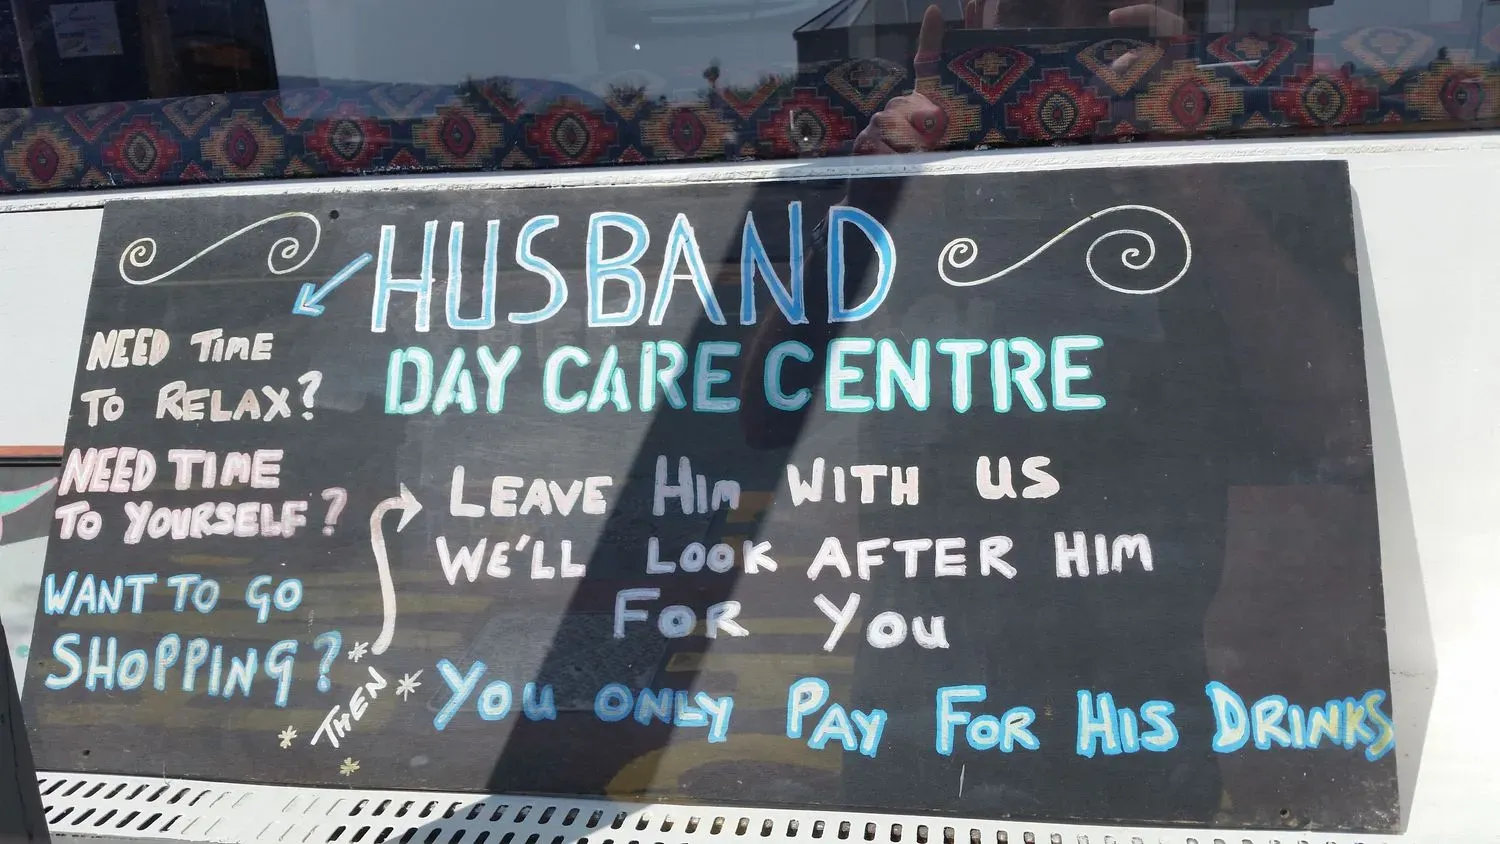 HUSBAND
DAY CARE CENTRE
NEED TIME
TO RELAX?
NEED TIME
TO YOURSELF?
WANT TO GO
SHOPPING?
THEN
LEAVE HIM WITH US
WE'LL LOOK AFTER HIM
FOR YOU
YOU ONLY PAY FOR HIS DRINKS